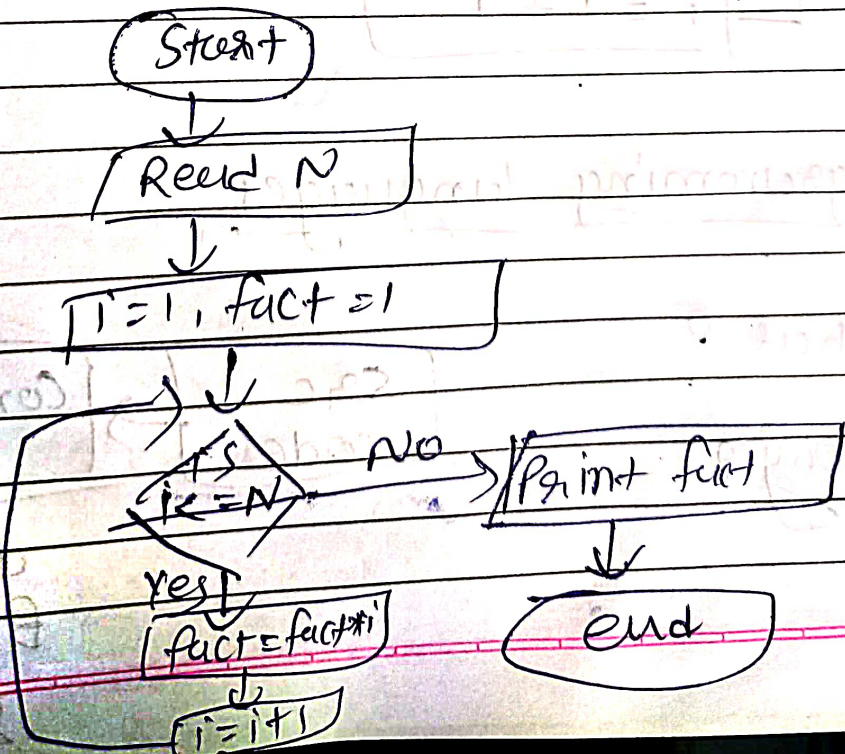 Start
Read N
i=1, fact=1
is
i<=N
NO
Print fact
Yes
end
fact=fact*i
i=i+1